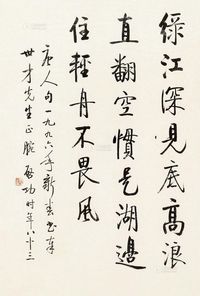 绿江深见底高浪
直翻空惯是湖边
住轻舟不畏风
唐人句一九九六年新春书奉
世才先生正腕 启功时年八十三